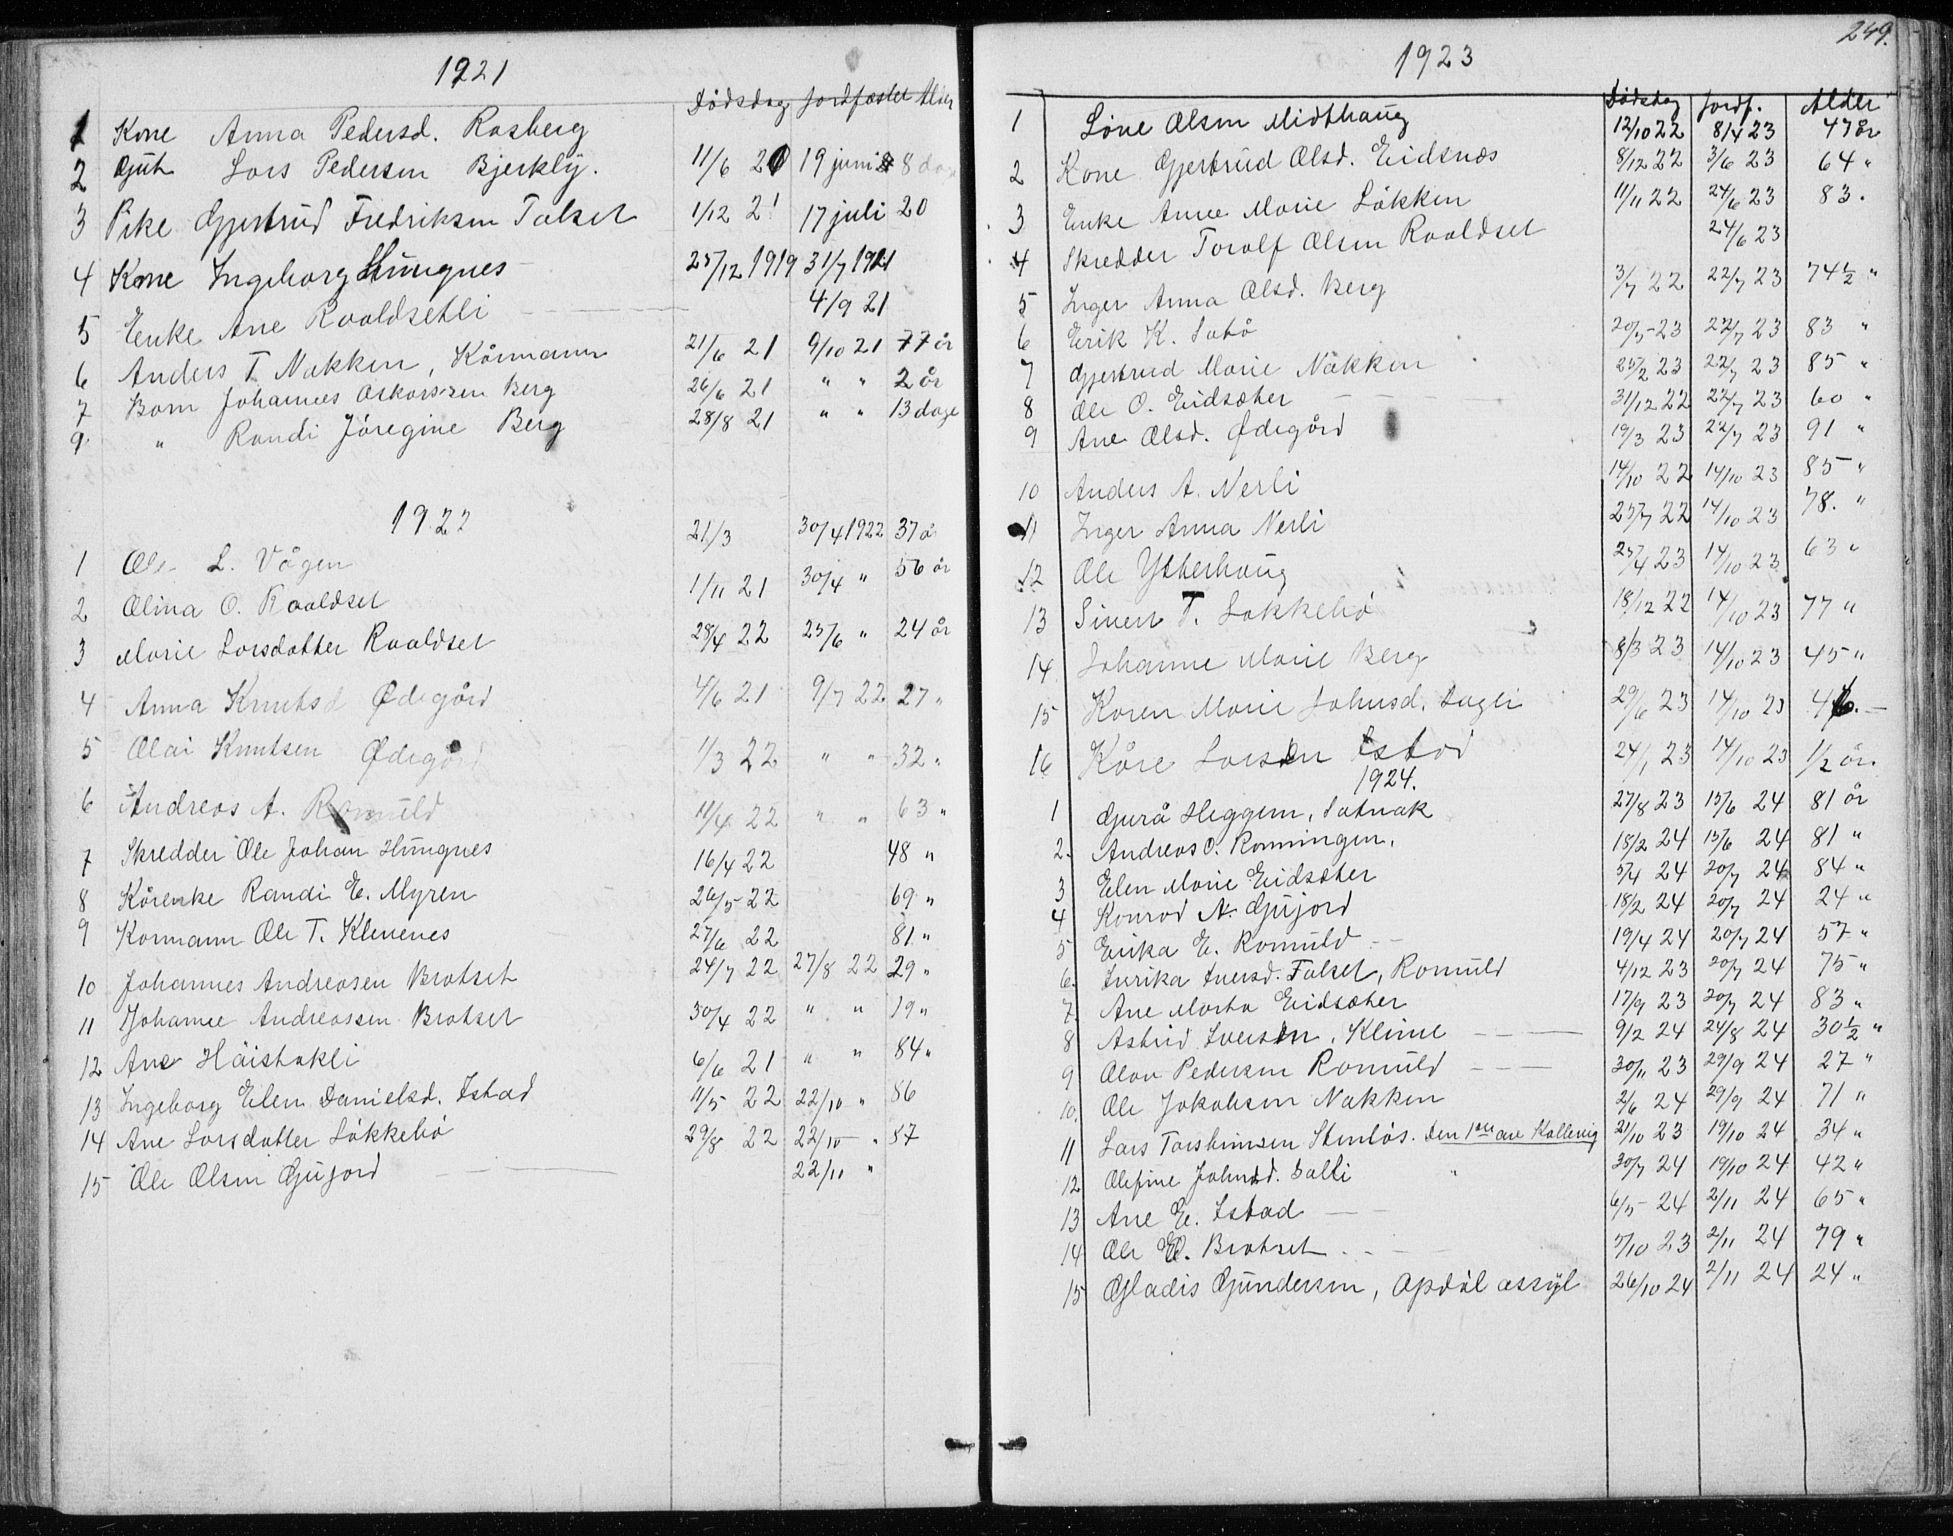 1921
Dødsdag Jordfæstet Alder
1 Kone Anna Pedersd. Rasberg
2 Gjut Lars Pedersen Bjerkly. 11/6 20 19 juni 8 dage
3 Pike Gjertrud Fredriksen Talset 1/12 21 17 juli 20
4 Kone Ingeborg Hungnes 25/12 1919 31/7 1921
5 Enke Ane Roaldsetli 4/9 21
6 Anders T Nakken, Kårmann 21/6 21 9/10 21 77 år
7 Barn Johannes Oskarssen Berg 26/6 21 " " 2 år
9 " Randi Jöregine Berg 28/8 21 " " 13 dage
1922
1 Ole L. Vågen 21/3 30/4 1922 37 å
2 Olina O. Roaldset 1/11 21 30/4 " 56 år
3 Marie Larsdatter Roaldset 28/4 22 25/6 " 24 år
4 Anna Knutsd Ødegård 4/6 21 9/7 22 27 "
5 Olai Knutsen Ødegård 1/3 22 " " 32 "
6 Andreas A. Romuld 11/4 22 " " 63 "
7 Skredder Ole Johan Hungnes 16/4 22 48 "
8 Kårenke Randi E. Myren 26/5 22 69 "
9 Kormann Ole T. Klevenes 27/6 22 81 "
10 Johannes Andreasen Bratset 24/7 22 27/8 22 29 "
11 Johanne Andreassen Bratset 30/4 22 " " 19 "
12 Ane Häistakli 6/6 21 " " 84 "
13 Ingeborg Elen Danielsd. Istad 11/5 22 22/10 " 86
14 Ane Larsdatter Løkkebø 29/8 22 22/10 " 87
15 Ole Olsen Gujord 22/11 "
249.
1923
Dødsdag Jordf. Alder
1 Lóve Olsen Midthaug 12/10 22 8/4 23 47 år
2 Kone Gjertrud Olsd. Eidsnæs 8/12 22 3/6 23 64 "
3 Enke Anne Marie Løkken 11/11 22 24/6 23 83 "
4 Skredder Toralf Olsen Roaldset 24/6 23
5 Inger Anna Olsd. Berg 3/7 22 22/7 23 74 1/2 "
6 Erik K. Sabø 20/5 23 22/7 23 83 "
7 Gjertrud Marie Nakken 25/2 23 22/7 23 85 "
8 Ole O. Eidsæter 31/12 22 22/7 23 60 "
9 Ane Olsd. Ødegård 19/3 23 22/7 23 91 "
10 Anders A. Nerli 14/10 22 14/10 23 85 "
11 Inger Anna Nerli 25/7 22 14/10 23 78. "
12 Ole Ytterhaug 25/4 23 14/10 23 63 "
13 Sivert T. Løkkebø 18/12 22 14/10 23 77 "
14 Johanne Marie Berg 8/3 23 14/10 23 45 "
15 Karen Marie Johnsd. Dagli 29/6 23 14/10 23 46.
16 Kåre Larsen Istad 24/1 23 14/10 23 1/2 år
1924.
1 Gurå Heggem, Satnak 27/8 23 15/6 24 81 år
2. Andreas O. Ronningen, 18/2 24 15/6 24 81 "
3 Elen Marie Eidsæter 5/4 24 20/7 24 84 "
4 Konrad N. Gujord 18/2 24 20/7 24 24 "
5 Erika E. Romuld 19/4 24 20/7 24 57 "
6. Iurika Iversd. Talset, Romuld 4/12 23 20/7 24 75 "
7. Ane Marta Eidsæter 17/9 23 20/7 24 83 "
8 Astrid Iversen, Kleive 9/2 24 24/8 24 30 1/2 "
9 Olav Pedersen Romuld 30/11 23 29/9 24 27 "
10. Ole Jakobsen Nakken 2/6 24 29/9 24 71 "
11 Lars Torsteinsen Stenløs. den 1ste ave Kallevig 21/10 23 19/10 24 34 "
12 Olefine Johnsd. Dalli " 30/7 24 19/10 24 42 "
13 Ane E. Istad 6/5 24 2/11 24 65 "
14 Ole O. Bratset 5/10 23 2/11 24 79 "
15 Gladis Gundersen, Opdøl assyl 26/10 24 2/11 24 24 "